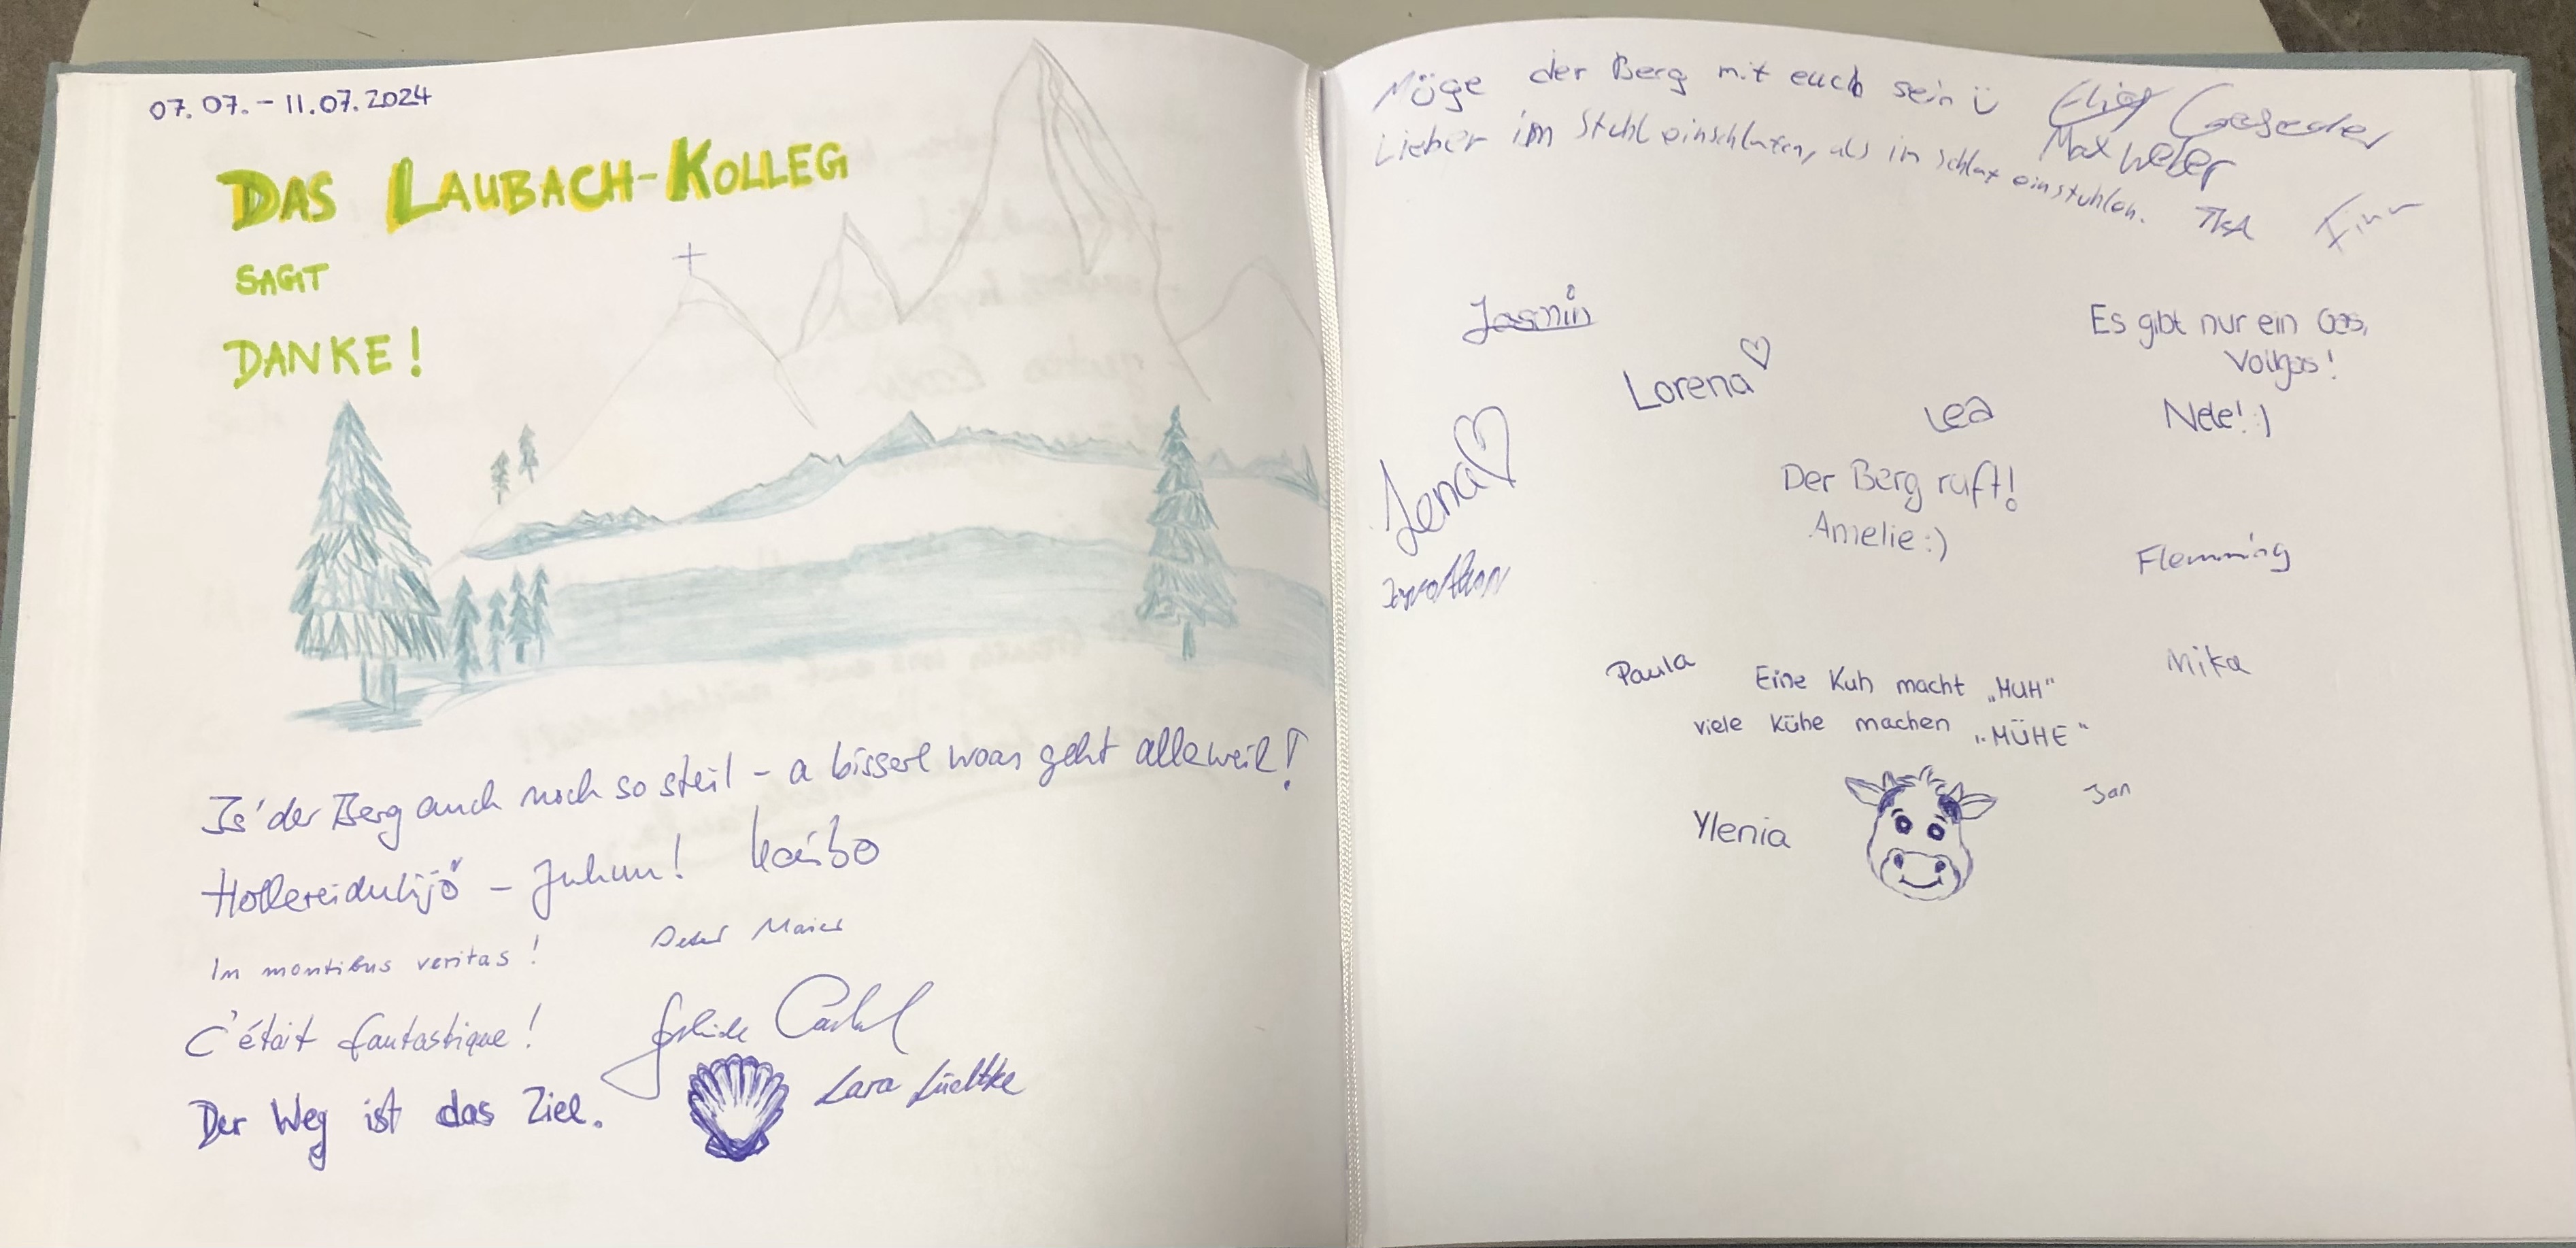 07.07. - 11.07.2024
DAS LAUBACH-KOLLEG
SAGT
DANKE!
Is' der Berg auch noch so steil - a bisserl woas geht alleweil!
Hollereidulijö - Juhuu!
In montibus veritas! Peter Maier
C'était fantastique!
Der Weg ist das Ziel. Lara Lüdtke
Möge der Berg mit euch sein Ü
Lieber im Stuhl einschlafen, als in Schlaf einstuhlen.
Max Weber
Finn
Jasmin
Es gibt nur ein Gas,
Vollgas!
Lorena
Lea
Nele! :)
Lena
Der Berg ruft!
Amelie :)
Flemming
Jonathan
Paula
Mika
Eine Kuh macht „MUH"
viele Kühe machen „MÜHE"
Jan
Ylenia